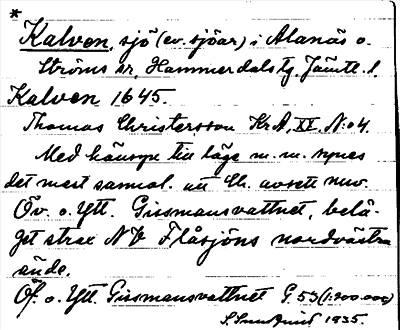 *
Kalven, sjö (ev. sjöar) i Alanäs o.
Ströms sr, Hammerdals tg. Jämtl. l
Kalven 1645.
Thomas Christersson KrA, XV. N:o 4.
Med hänsyn till läge m. m. synes
det mest sannol. att Ch. avsett nuv.
Öv. o. Ytt. Gissmansvattnet, belä-
get strax NV Flåsjöns nordvästra
ände.
Öf. o. Ytt. Gissmansvattnet G. 53 (1:200.000)
S. Sundquist 1935.